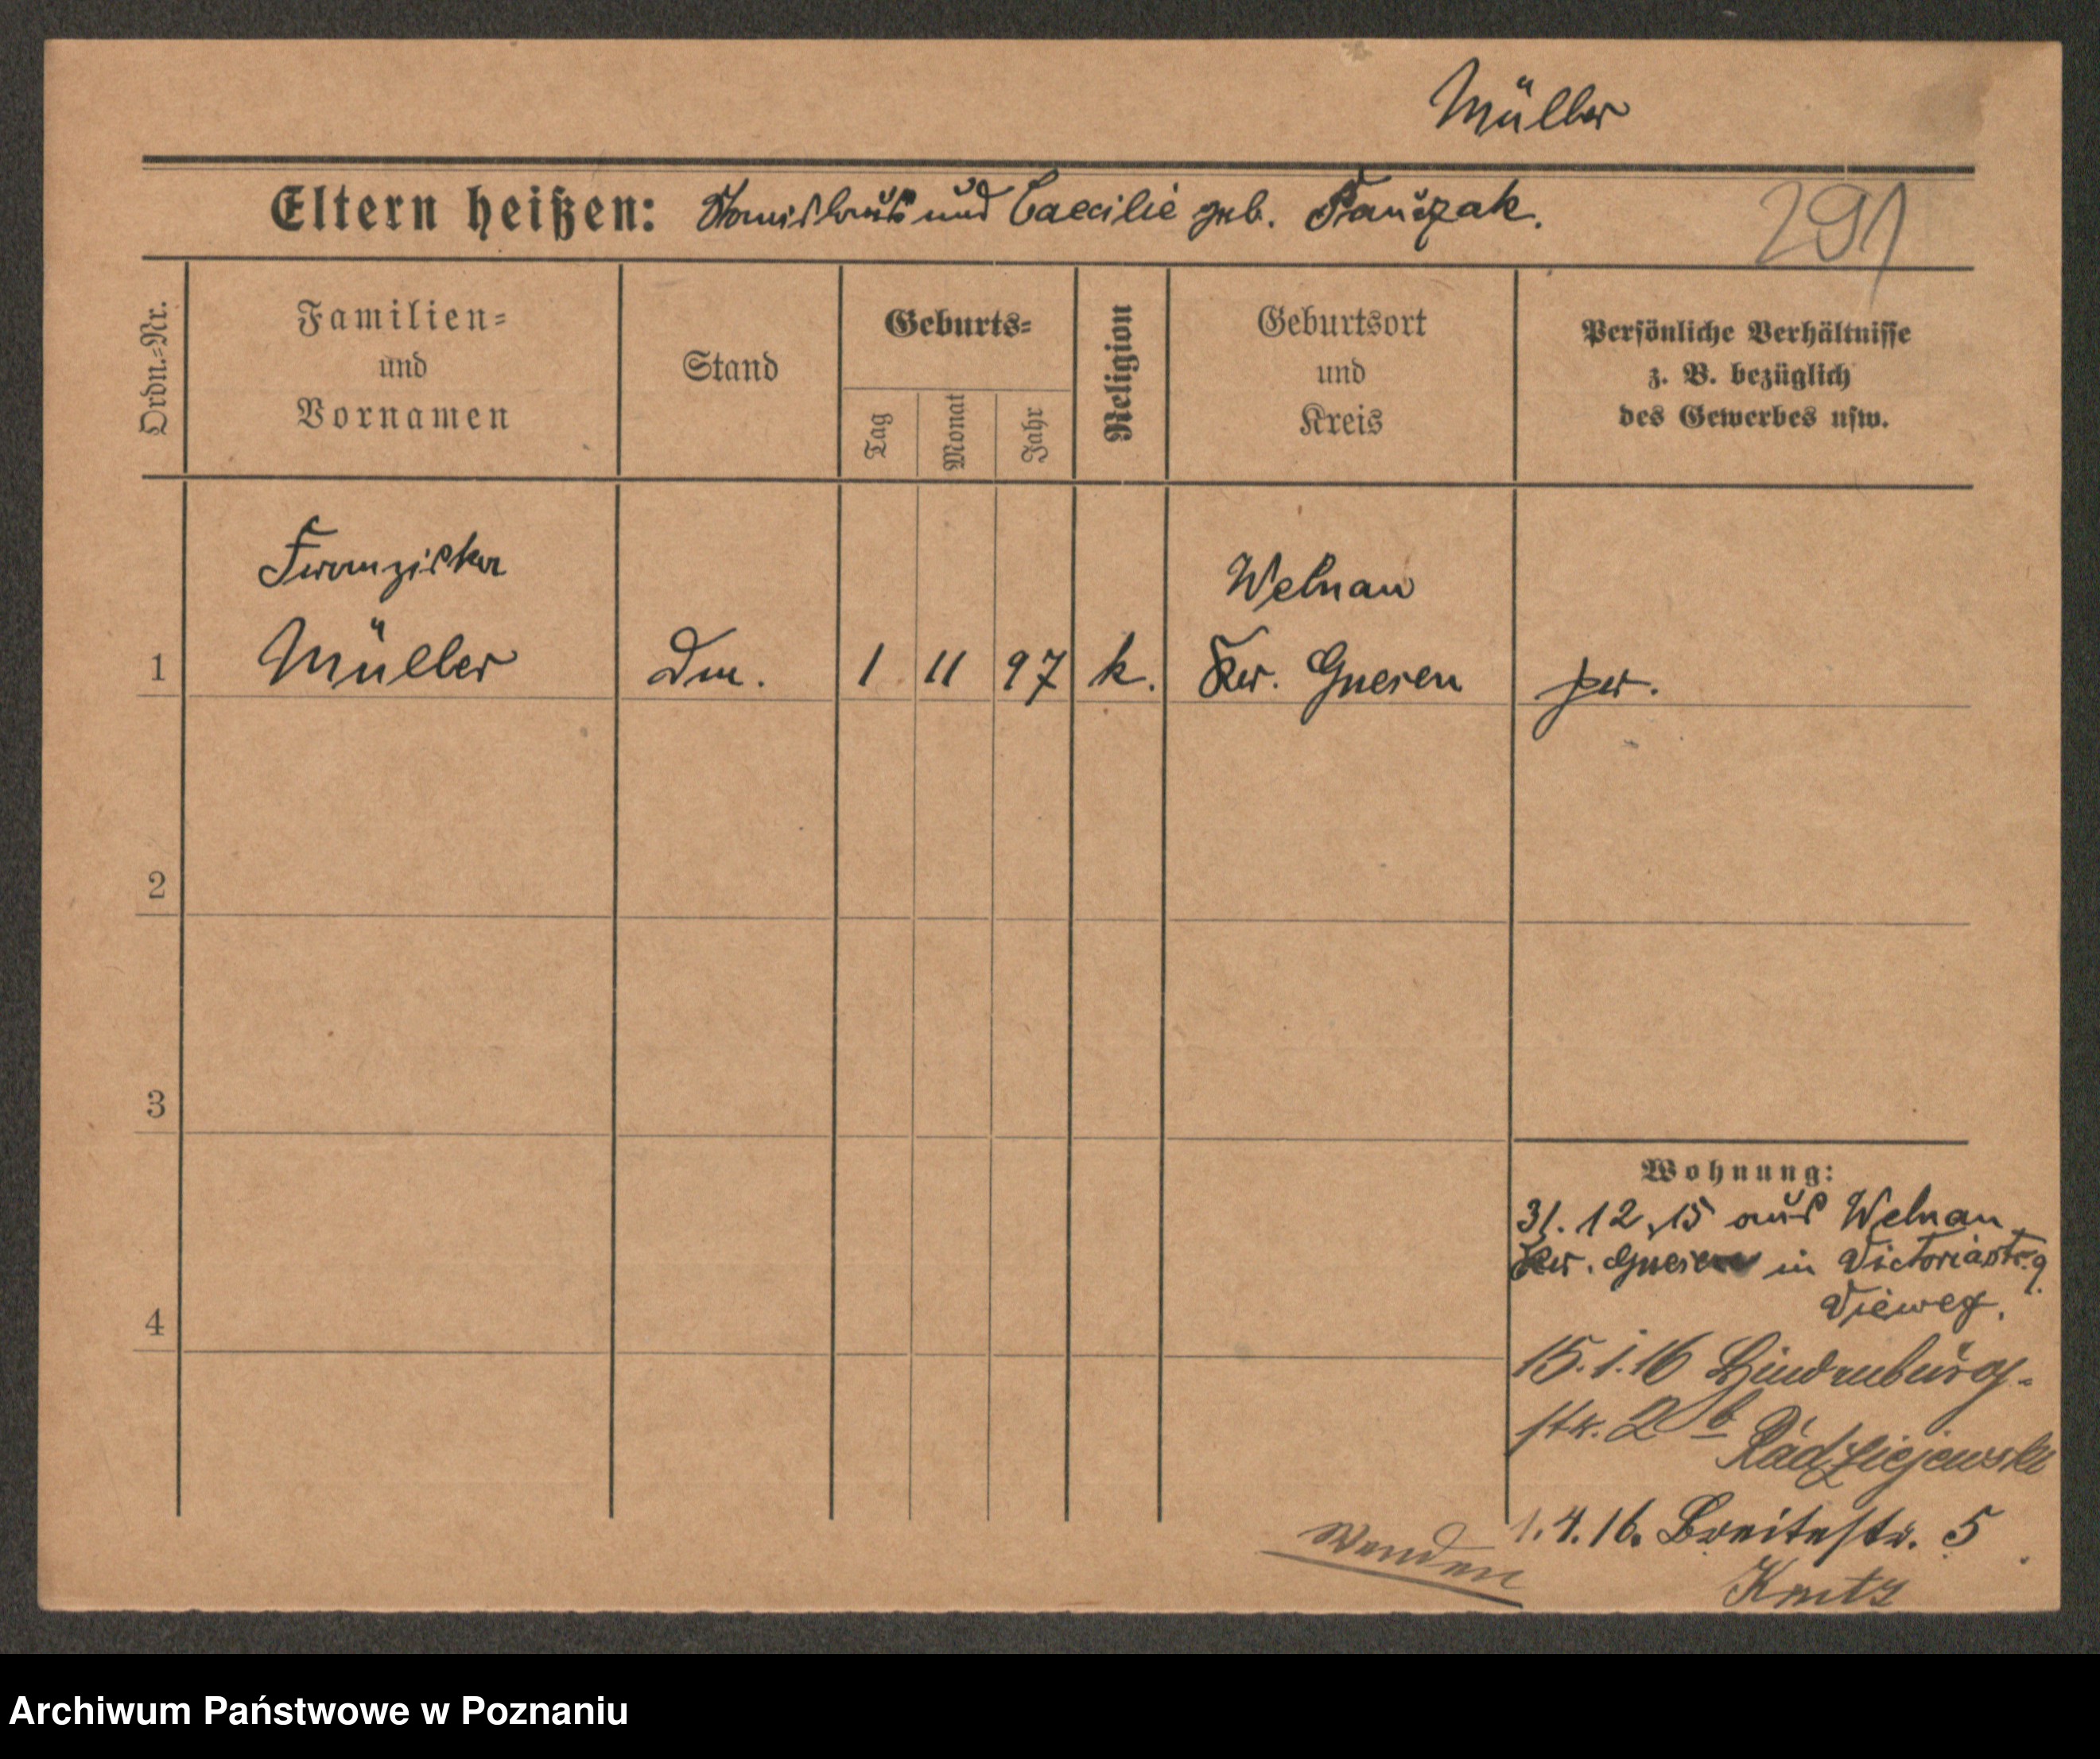 Müller
Eltern heißen: Stanislaus und Caecilie geb. Franczak.
291
Ordn.-Nr.
Familien-
und
Vornamen
Stand
Geburts-
Tag
Monat
Jahr
Religion
Geburtsort
und
Kreis
Persönliche Verhältnisse
z. B. bezüglich
des Gewerbes usw.
Franziska
Müller
1
Dm.
1 11 97
k.
Welnau
Kr. Gnesen
pr.
2
3
4
Wohnung:
31.12.15 aus Welnau
Kr. Gnesen in Victoriastr. 9
Vieweg.
15.1.16 Hindenburg-
str. 2 b
Radziejewski
1.4.16. Breitestr. 5
Wenden
Archiwum Państwowe w Poznaniu